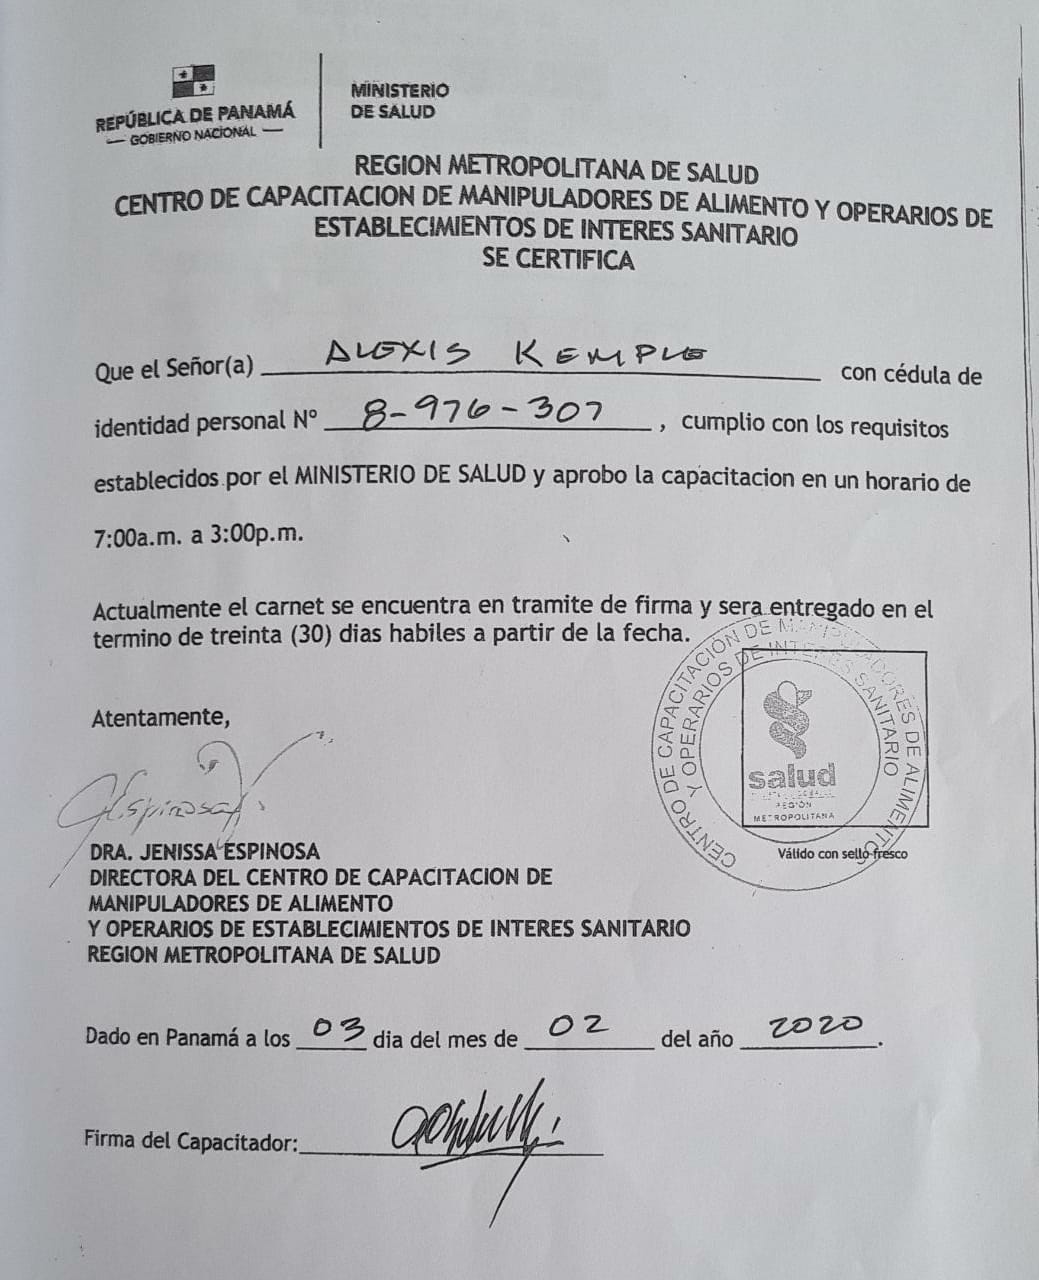 REPÚBLICA DE PANAMÁ
— GOBIERNO NACIONAL —
MINISTERIO
DE SALUD
REGION METROPOLITANA DE SALUD
CENTRO DE CAPACITACION DE MANIPULADORES DE ALIMENTO Y OPERARIOS DE
ESTABLECIMIENTOS DE INTERES SANITARIO
SE CERTIFICA
Que el Señor(a) ALEXIS KEMPLE con cédula de
identidad personal Nº 8-976-307, cumplio con los requisitos
establecidos por el MINISTERIO DE SALUD y aprobo la capacitacion en un horario de
7:00a.m. a 3:00p.m.
Actualmente el carnet se encuentra en tramite de firma y sera entregado en el
termino de treinta (30) dias habiles a partir de la fecha.
CENTRO DE CAPACITACIÓN DE MANIPULADORES DE ALIMENTO
Y OPERARIOS DE INTERES SANITARIO
salud
REGIÓN
METROPOLITANA
Válido con sello fresco
Atentamente,
JEspinosa
DRA. JENISSA ESPINOSA
DIRECTORA DEL CENTRO DE CAPACITACION DE
MANIPULADORES DE ALIMENTO
Y OPERARIOS DE ESTABLECIMIENTOS DE INTERES SANITARIO
REGION METROPOLITANA DE SALUD
Dado en Panamá a los 03 dia del mes de 02 del año 2020.
Firma del Capacitador: